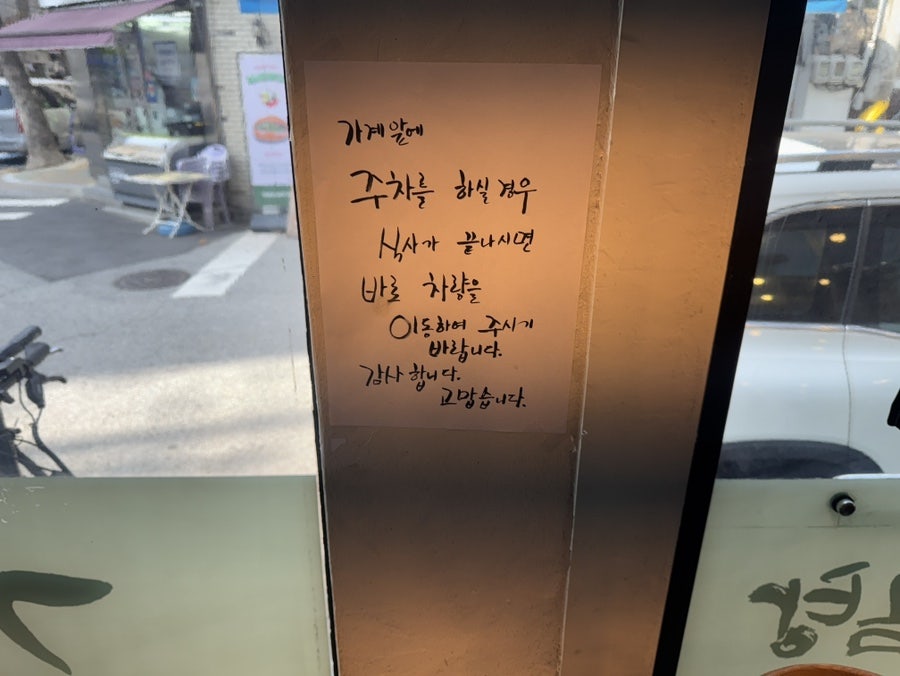 가게앞에
주차를 하실경우
식사가 끝나시면
바로 차량을
이동하여 주시기
바랍니다.
감사합니다.
고맙습니다.